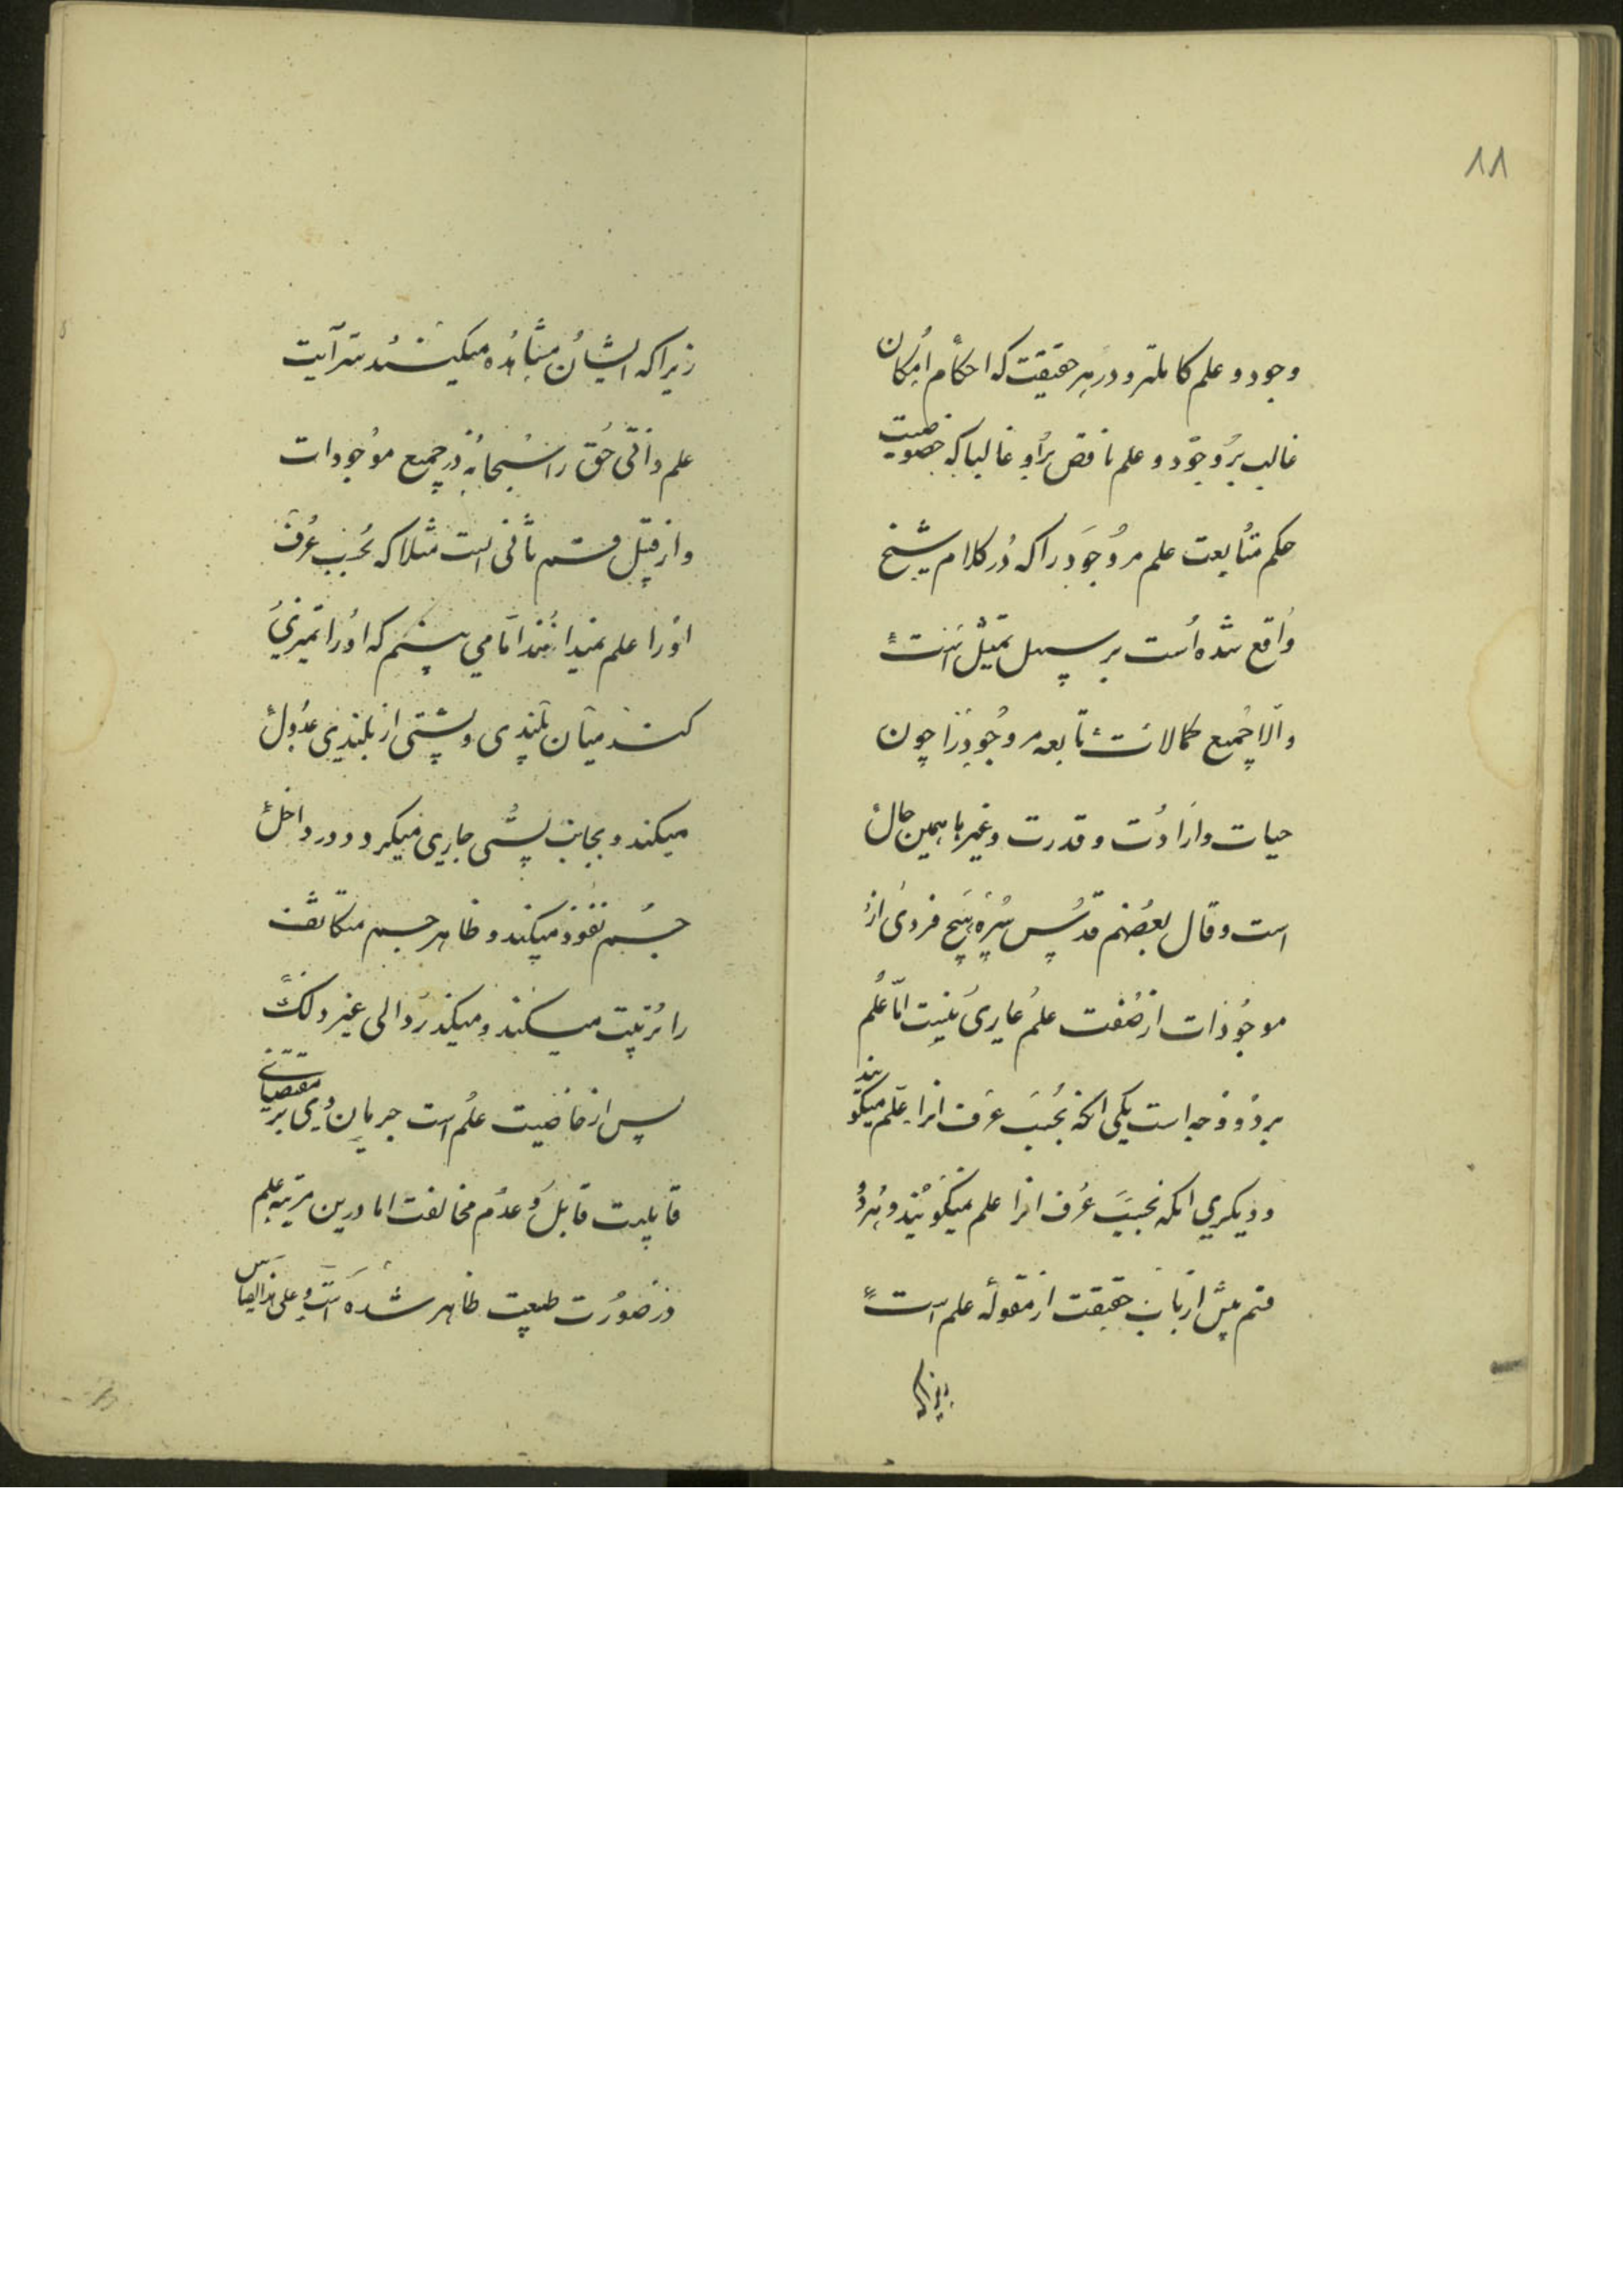 ۸۸
وجود و علم کاملتر و در هر حقیقت که احکام امکان
غالب بر وجود و علم ناقص بر او غالبا که خصوصیت
حکم متابعت علم مر وجود را که در کلام شیخ
واقع شده است بر سبیل تمثیل است
والا جمیع کمالات تابعه مر وجود را چون
حیات و ارادت و قدرت و غیرها همین حال
است و قال بعضهم قدس سره هیچ فردی از
موجودات از صفت علم عاری نیست اما علم
بر دو وجه است یکی انکه بحسب عرف انرا علم میگویند
و دیکری انکه بحسب عرف انرا علم نمیگویند و هر دو
قسم پیش ارباب حقیقت از مقوله علم است
زیراکه
زیراکه ایشان مشاهده میکنند سرایت
علم ذاتی حق را سبحانه در جمیع موجودات
و از قبیل قسم ثانی است مثلا که بحسب عرف
اورا علم نمیدانند اما می بینم که اورا تمیزی
کند میان بلندی و پستی از بلندی عدول
میکند و بجانب پستی جاری میکردد و در داخل
جسم نفوذ میکند و ظاهر جسم متکاثف
را ترتیب میکند و میکذرد الی غیر ذلک
پس از خاصیت علم است جریان وی بر مقتضای
قابلیت قابل و عدم مخالفت اما درین مرتبه علم
در صورت طبیعت ظاهر شده است و علی هذا القیاس